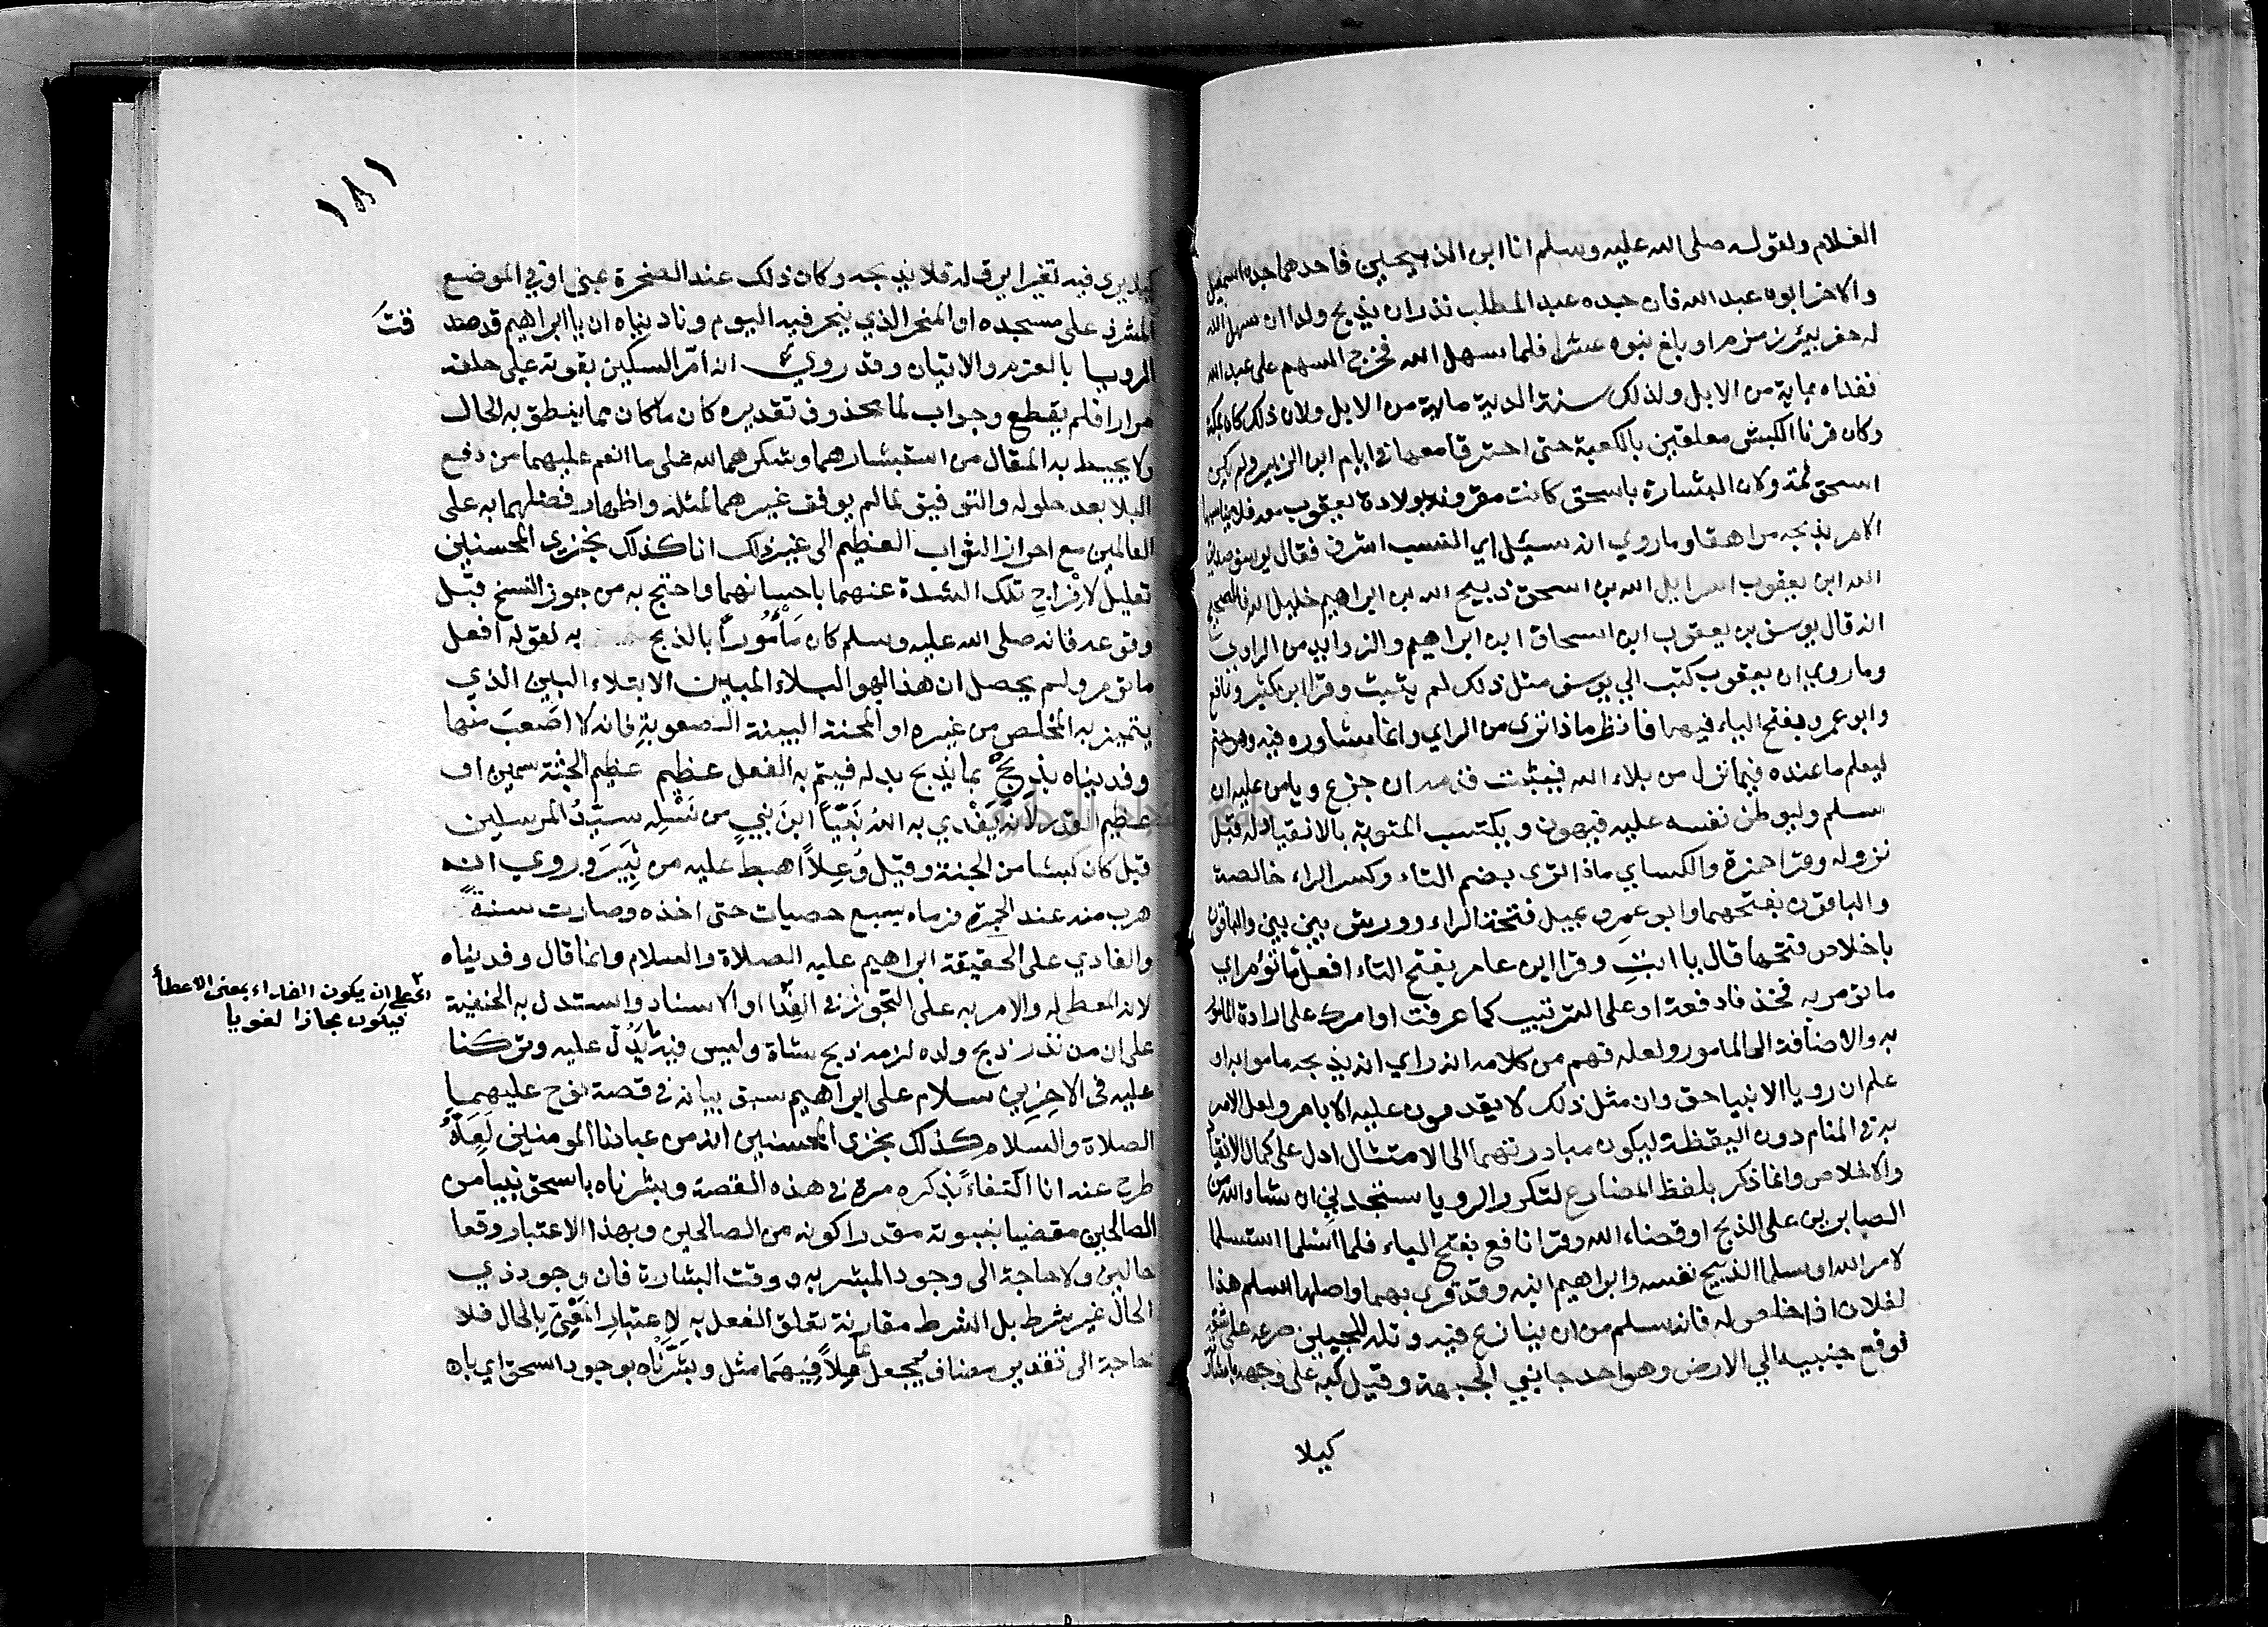 الغلام ولقوله صلى الله عليه وسلم انا ابن الذبيحين فاحدهما جده اسمعيل
والاخر ابوه عبد الله فان جده عبد المطلب نذر ان يذبح ولدا ان سهل الله
له حفر بير زمزم او بلغ بنوه عشرا فلما سهل الله فخرج السهم على عبد الله
ففداه بماية من الابل ولذلك سنت الدية ماية من الابل ولان ذلك كان بمكة
وكان قرنا الكبش معلقين بالكعبة حتى احترقا معها في ايام ابن الزبير ولم يكن
اسحق ثمة ولان البشارة باسحق كانت مقرونة بولادة يعقوب منه فلا يناسبها
الامر بذبحه مراهقا وما روي انه سئل اي النسب اشرف فقال يوسف صديق
الله ابن يعقوب اسرايل الله بن اسحق ذبيح الله بن ابراهيم خليل الله فالصحيح
انه قال يوسف بن يعقوب ابن اسحاق ابن ابراهيم والزوايد من الراوي
وما روي ان يعقوب كتب الي يوسف مثل ذلك لم يثبت وقرا ابن كثير ونافع
وابو عمرو بفتح الياء فيهما فانظر ماذا ترى من الراي وانما شاوره فيه وهو حتم
ليعلم ما عنده فيما نزل من بلاء الله فيثبت قدمه ان جزع ويامن عليه ان
سلم وليوطن نفسه عليه فيهون ويكتسب المثوبة بالانقياد له قبل
نزوله وقرا حمزة والكساي ماذا تري بضم التاء وكسر الراء خالصة
والباقون بفتحهما وابو عمرو يميل فتحة الراء وورش بين بين والباقون
باخلاص فتحها قال يا ابت وقرا ابن عامر بفتح التاء افعل ما تؤمر اي
ما تومر به فحذفا دفعة او على الترتيب كما عرفت او امرك على ارادة المامور
به والاضافة الى المامور ولعله فهم من كلامه انه راي انه يذبحه مامورا به او
علم ان رويا الانبيا حق وان مثل ذلك لا يقدمون عليه الا بامر ولعل الامر
به في المنام دون اليقظة ليكون مبادرتهما الى الامتثال ادل على كمال الانقياد
والاخلاص وانما ذكر بلفظ المضارع لتكرر الرويا ستجدني ان شاء الله من
الصابرين على الذبح او قضاء الله وقرا نافع بفتح الياء فلما اسلما استسلما
لامر الله او سلما الذبيح نفسه وابراهيم ابنه وقد قرى بهما واصلها سلم هذا
لفلان اذا خلص له فانه سلم من ان ينازع فيه وتله للجبين صرعه على شقه
فوقع جبينه الي الارض وهو احد جانبي الجبهة وقيل كبه على وجهه باشارته
كيلا
١٨١
كيلا يرى فيه تغيرا يرق له فلا يذبحه وكان ذلك عند الصخرة بمنى او في الموضع
المشرف على مسجده او المنحر الذي ينحر فيه اليوم وناديناه ان يا ابراهيم قد صد
قت
الرويا بالعزم والاتيان وقد روي انه امّر السكين بقوته على حلقه
مرارا فلم يقطع وجواب لما محذوف تقديره كان ما كان مما ينطق به الحال
ولا يحيط به المقال من استبشارهما وشكرهما لله على ما انعم عليهما من دفع
البلا بعد حلوله والتوفيق لما لم يوفق غيرهما لمثله واظهار فضلهما به على
العالمين مع احراز الثواب العظيم الى غير ذلك انا كذلك نجزي المحسنين
تعليل لافراج تلك الشدة عنهما باحسانهما واحتج به من جوز النسخ قبل
وقوعه فانه صلى الله عليه وسلم كان مأمورا بالذبح به لقوله افعل
ما تومر ولم يحصل ان هذا لهو البلاء المبين الابتلاء البين الذي
يتميز به المخلص من غيره او المحنة البينة الصعوبة فانه لا اصعب منها
وفديناه بذبح بما يذبح بدله فيتم به الفعل عظيم عظيم الجثة سمين او
عظيم القدر لانه يفدي به الله نبيا ابن نبي من نسله سيد المرسلين
قيل كان كبشا من الجنة وقيل وعلا اهبط عليه من ثبير وروي انه
هرب منه عند الجمرة فرماه بسبع حصيات حتى اخذه وصارت سنة
والفادي على الحقيقة ابراهيم عليه الصلاة والسلام وانما قال وفديناه
لانه المعطى له والامر به على التجوز في الفدا او الاسناد واستدل به الحنفية
على ان من نذر ذبح ولده لزمه ذبح شاة وليس فيه ما يدل عليه وتركنا
عليه فى الاخرين سلام على ابراهيم سبق بيانه في قصة نوح عليهما
الصلاة والسلام كذلك نجزى المحسنين انه من عبادنا المومنين لعله
طرح عنه انا اكتفاء بذكره مرة في هذه القصة وبشرناه باسحق نبيا من
الصالحين مقضيا بنبوته مقدرا كونه من الصالحين وبهذا الاعتبار وقعا
حالين ولا حاجة الى وجود المبشر به وقت البشارة فان وجود ذي
الحال غير شرط بل الشرط مقارنة تعلق الفعل به لاعتبار المعنى بالحال فلا
حاجة الى تقدير مضاف يجعل عاملا فيهما مثل وبشرناه بوجود اسحق اي بان
ان يكون الفداء بمعنى الاعطا
فيكون مجازا لغويا